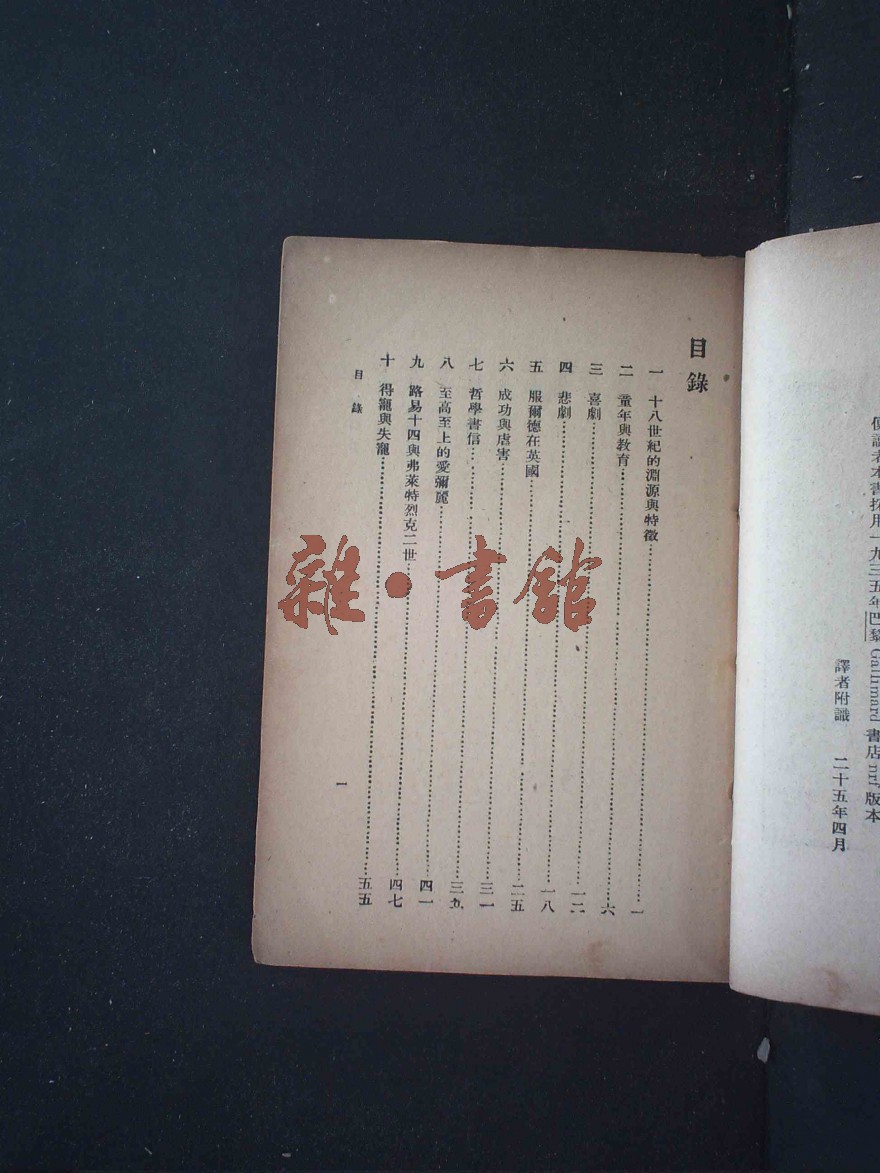 讀者本書採用一九三五年巴黎Gallimard書店nrf版本
譯者附識　二十五年四月
目錄
一　十八世紀的淵源與特徵……一
二　童年與教育……六
三　喜劇……一二
四　悲劇……一八
五　服爾德在英國……二五
六　成功與虐害……三一
七　哲學書信……三九
八　至高至上的愛彌麗……四一
九　路易十四與弗萊特烈克二世……四七
十　得寵與失寵……五五
目錄
一
雜·書館